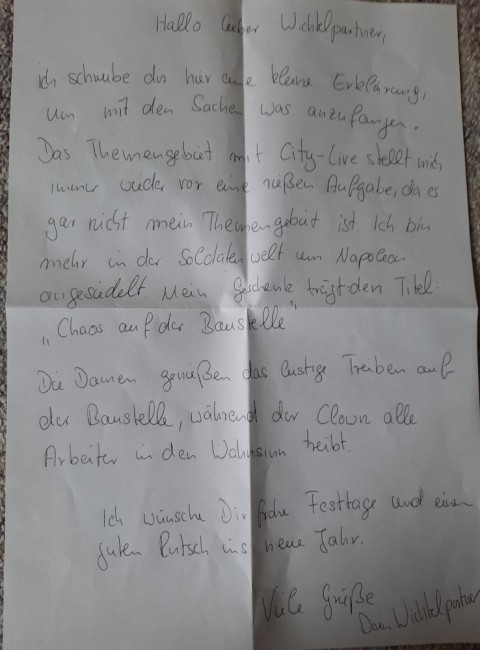 Hallo lieber Wichtelpartner,
ich schreibe dir hier eine kleine Erklärung,
um mit den Sachen was anzufangen.
Das Themengebiet mit City-Live stellt mich
immer wieder vor eine riesen Aufgabe, da es
gar nicht mein Themengebiet ist. Ich bin
mehr in der Soldatenwelt um Napoleon
angesiedelt. Mein Geschenk trägt den Titel:
„Chaos auf der Baustelle"
Die Damen genießen das lustige Treiben auf
der Baustelle, während der Clown alle
Arbeiter in den Wahnsinn treibt.
Ich wünsche Dir frohe Festtage und einen
guten Rutsch ins neue Jahr.
Viele Grüße
Dein Wichtelpartner